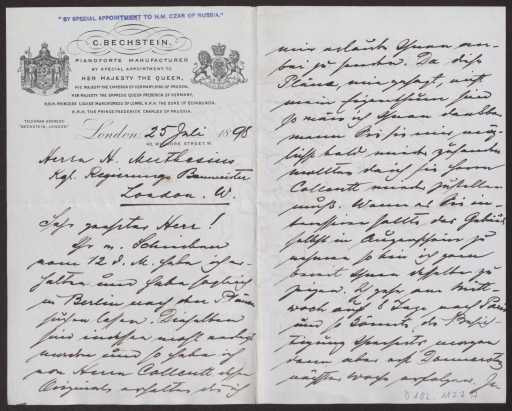 "BY SPECIAL APPOINTMENT TO H.M. CZAR OF RUSSIA."
C. BECHSTEIN,
PIANOFORTE MANUFACTURER
BY SPECIAL APPOINTMENT TO
HER MAJESTY THE QUEEN,
H.M. THE EMPEROR OF GERMANY, KING OF PRUSSIA,
HER MAJESTY THE EMPRESS QUEEN FREDERICK OF GERMANY,
H.R.H. PRINCESS LOUISE MARCHIONESS OF LORNE, H.R.H. THE DUKE OF EDINBURGH,
H.R.H. THE PRINCE FREDERICK CHARLES OF PRUSSIA.
TELEGRAM ADDRESS
"BECHSTEIN, LONDON"
London, 25 Juli 1898
40, WIGMORE STREET, W.
Herrn H. Muthesius
Kgl. Regierungs Baumeister
London. W.
Sehr geehrter Herr!
Ihr w. Schreiben
vom 12 d. M. habe ich er-
halten und habe sogleich
in Berlin nach den Plänen
suchen lassen. Dieselben
sind indessen nicht
worden und so habe ich
von Herrn Collcutt
Originale erhalten die ich
mir erlaube Ihnen
bei zu senden. Da diese
Pläne,
mein Eigenthum sind
so muss ich Ihnen dankbar
wenn Sie sie mir
wieder zusenden
wollten da ich sie Herrn
Collcutt wieder zustellen
muß. Wenn es Sie in-
teressiren sollte, das Gebäude
selbst in Augenschein zu
nehmen so bin ich gern
bereit Ihnen dasselbe zu
zeigen. Ich gehe am Mitt-
woch auf 8 Tage nach Paris
und so könnte die Besich-
tigung morgen
oder erst Donnerstag
nächster Woche erfolgen.
D 102-1127